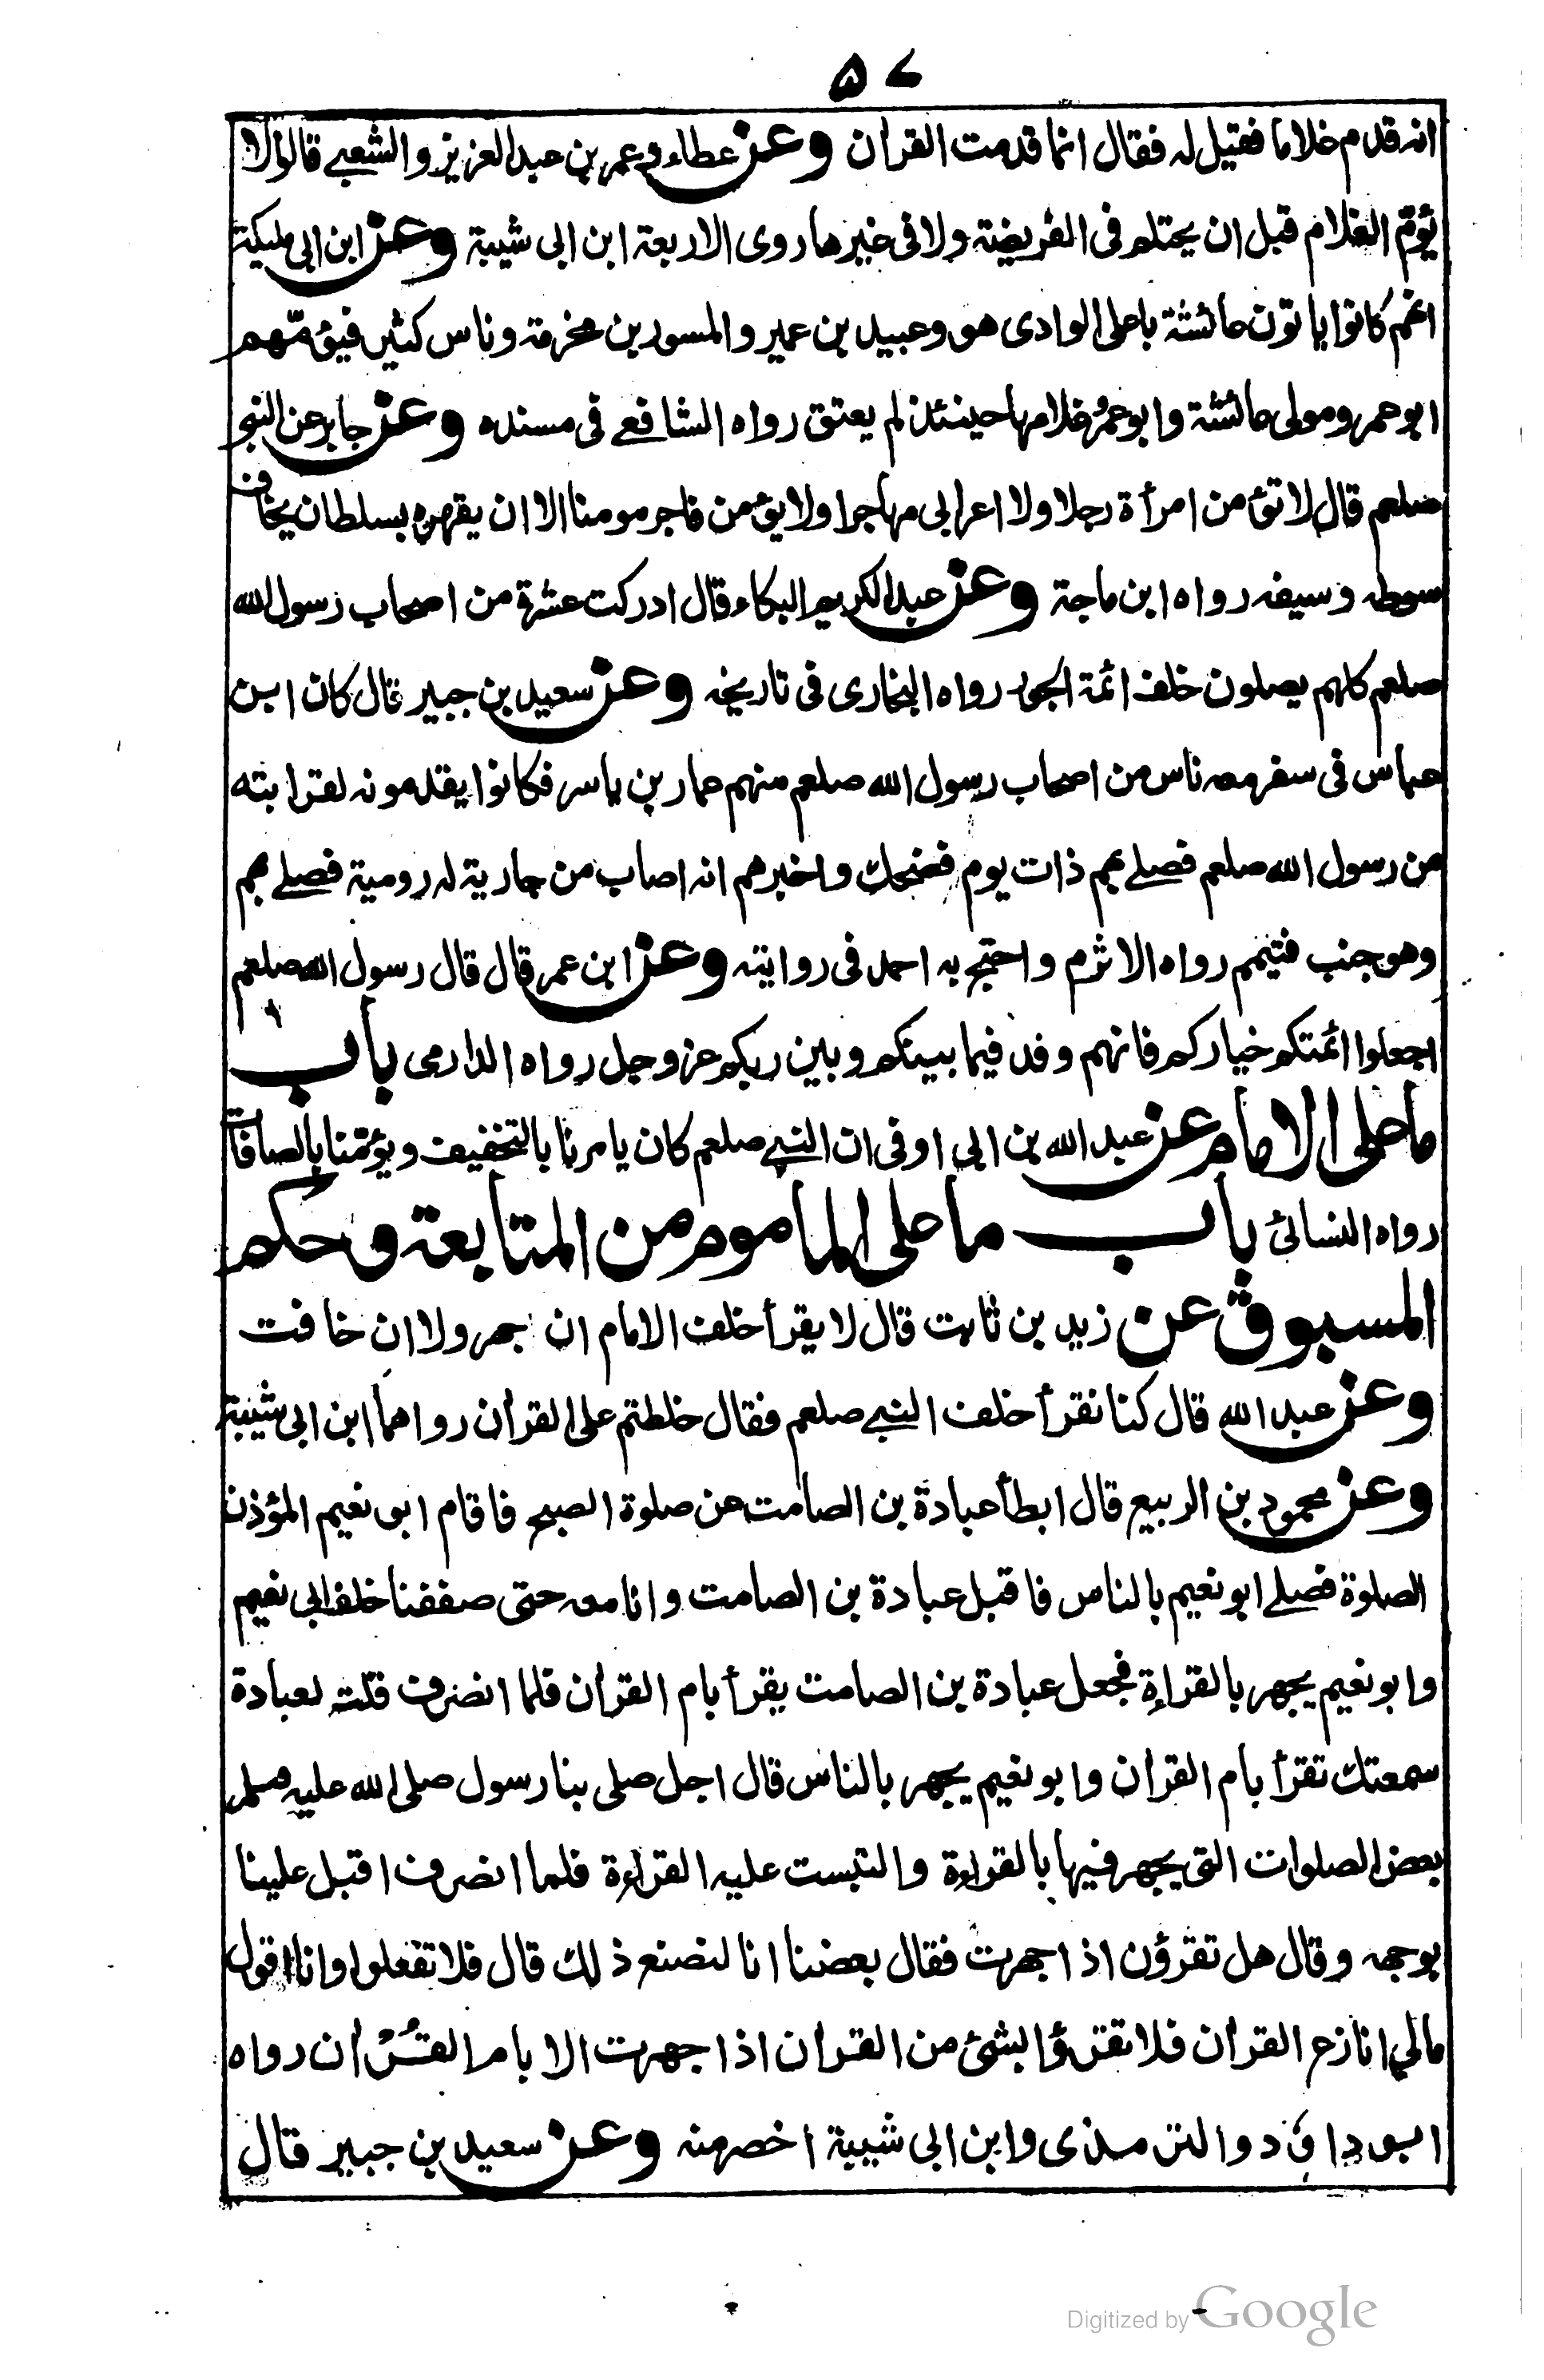 ۵۷
انه قدم غلاما فقيل له فقال انما قدمت القران وعن عطاء وعمر بن عبد العزيز والشعبي قالوا لا
يؤم الغلام قبل ان يحتلم فى الفريضة ولا فى غيرها روى الاربعة ابن ابى شيبة وعن ابن ابى مليكة
انهم كانوا ياتون عائشة باعلى الوادى هو وعبيد بن عمير والمسور بن مخرمة وناس كثير فيؤمهم
ابو عمرو مولى عائشة وابو عمرو غلامها حينئذ لم يعتق رواه الشافعي فى مسنده وعن جابر عن النبي
صلعم قال لا تؤمن امرأة رجلا ولا اعرابى مهاجرا ولا يؤمن فاجر مومنا الا ان يقهره بسلطان يخاف
سوطه وسيفه رواه ابن ماجة وعن عبد الكريم البكاء قال ادركت عشرة من اصحاب رسول الله
صلعم كلهم يصلون خلف ائمة الجور رواه البخارى فى تاريخه وعن سعيد بن جبير قال كان ابن
عباس فى سفر معه ناس من اصحاب رسول الله صلعم منهم عمار بن ياسر فكانوا يقدمونه لقرابته
من رسول الله صلعم فصلے بهم ذات يوم فضحك واخبرهم انه اصاب من جارية له رومية فصلے بهم
وهو جنب فتيمم رواه الاثرم واحتج به احمد فى روايته وعن ابن عمر قال قال رسول الله صلعم
اجعلوا ائمتكم خياركم فانهم وفد فيما بينكم وبين ربكم عز وجل رواه الدارمى باب
ما على الامام عن عبد الله بن ابى اوفى ان النبي صلعم كان يامرنا بالتخفيف ويؤمنا بالصافات
رواه النسائى باب ما على الماموم من المتابعة وحكم
المسبوق عن زيد بن ثابت قال لا يقرأ خلف الامام ان جهر ولا ان خافت
وعن عبد الله قال كنا نقرأ خلف النبي صلعم فقال خلطتم على القران رواهما ابن ابى شيبة
وعن محمود بن الربيع قال ابطأ عبادة بن الصامت عن صلوة الصبح فاقام ابو نعيم المؤذن
الصلوة فصلے ابو نعيم بالناس فاقبل عبادة بن الصامت وانا معه حتى صففنا خلف ابى نعيم
وابو نعيم يجهر بالقراءة فجعل عبادة بن الصامت يقرأ بام القران فلما انصرف قلت لعبادة
سمعتك تقرأ بام القران وابو نعيم يجهر بالناس قال اجل صلى بنا رسول صلى الله عليه وسلم
بعض الصلوات التى يجهر فيها بالقراءة والتبست عليه القراءة فلما انصرف اقبل علينا
بوجهه وقال هل تقرؤن اذا جهرت فقال بعضنا انا لنصنع ذلك قال فلا تفعلوا وانا اقول
مالي انازع القران فلا تقرؤا بشئ من القران اذا جهرت الا بام القران رواه
ابو داؤد والترمذى وابن ابى شيبة اخصر منه وعن سعيد بن جبير قال
Digitized by Google